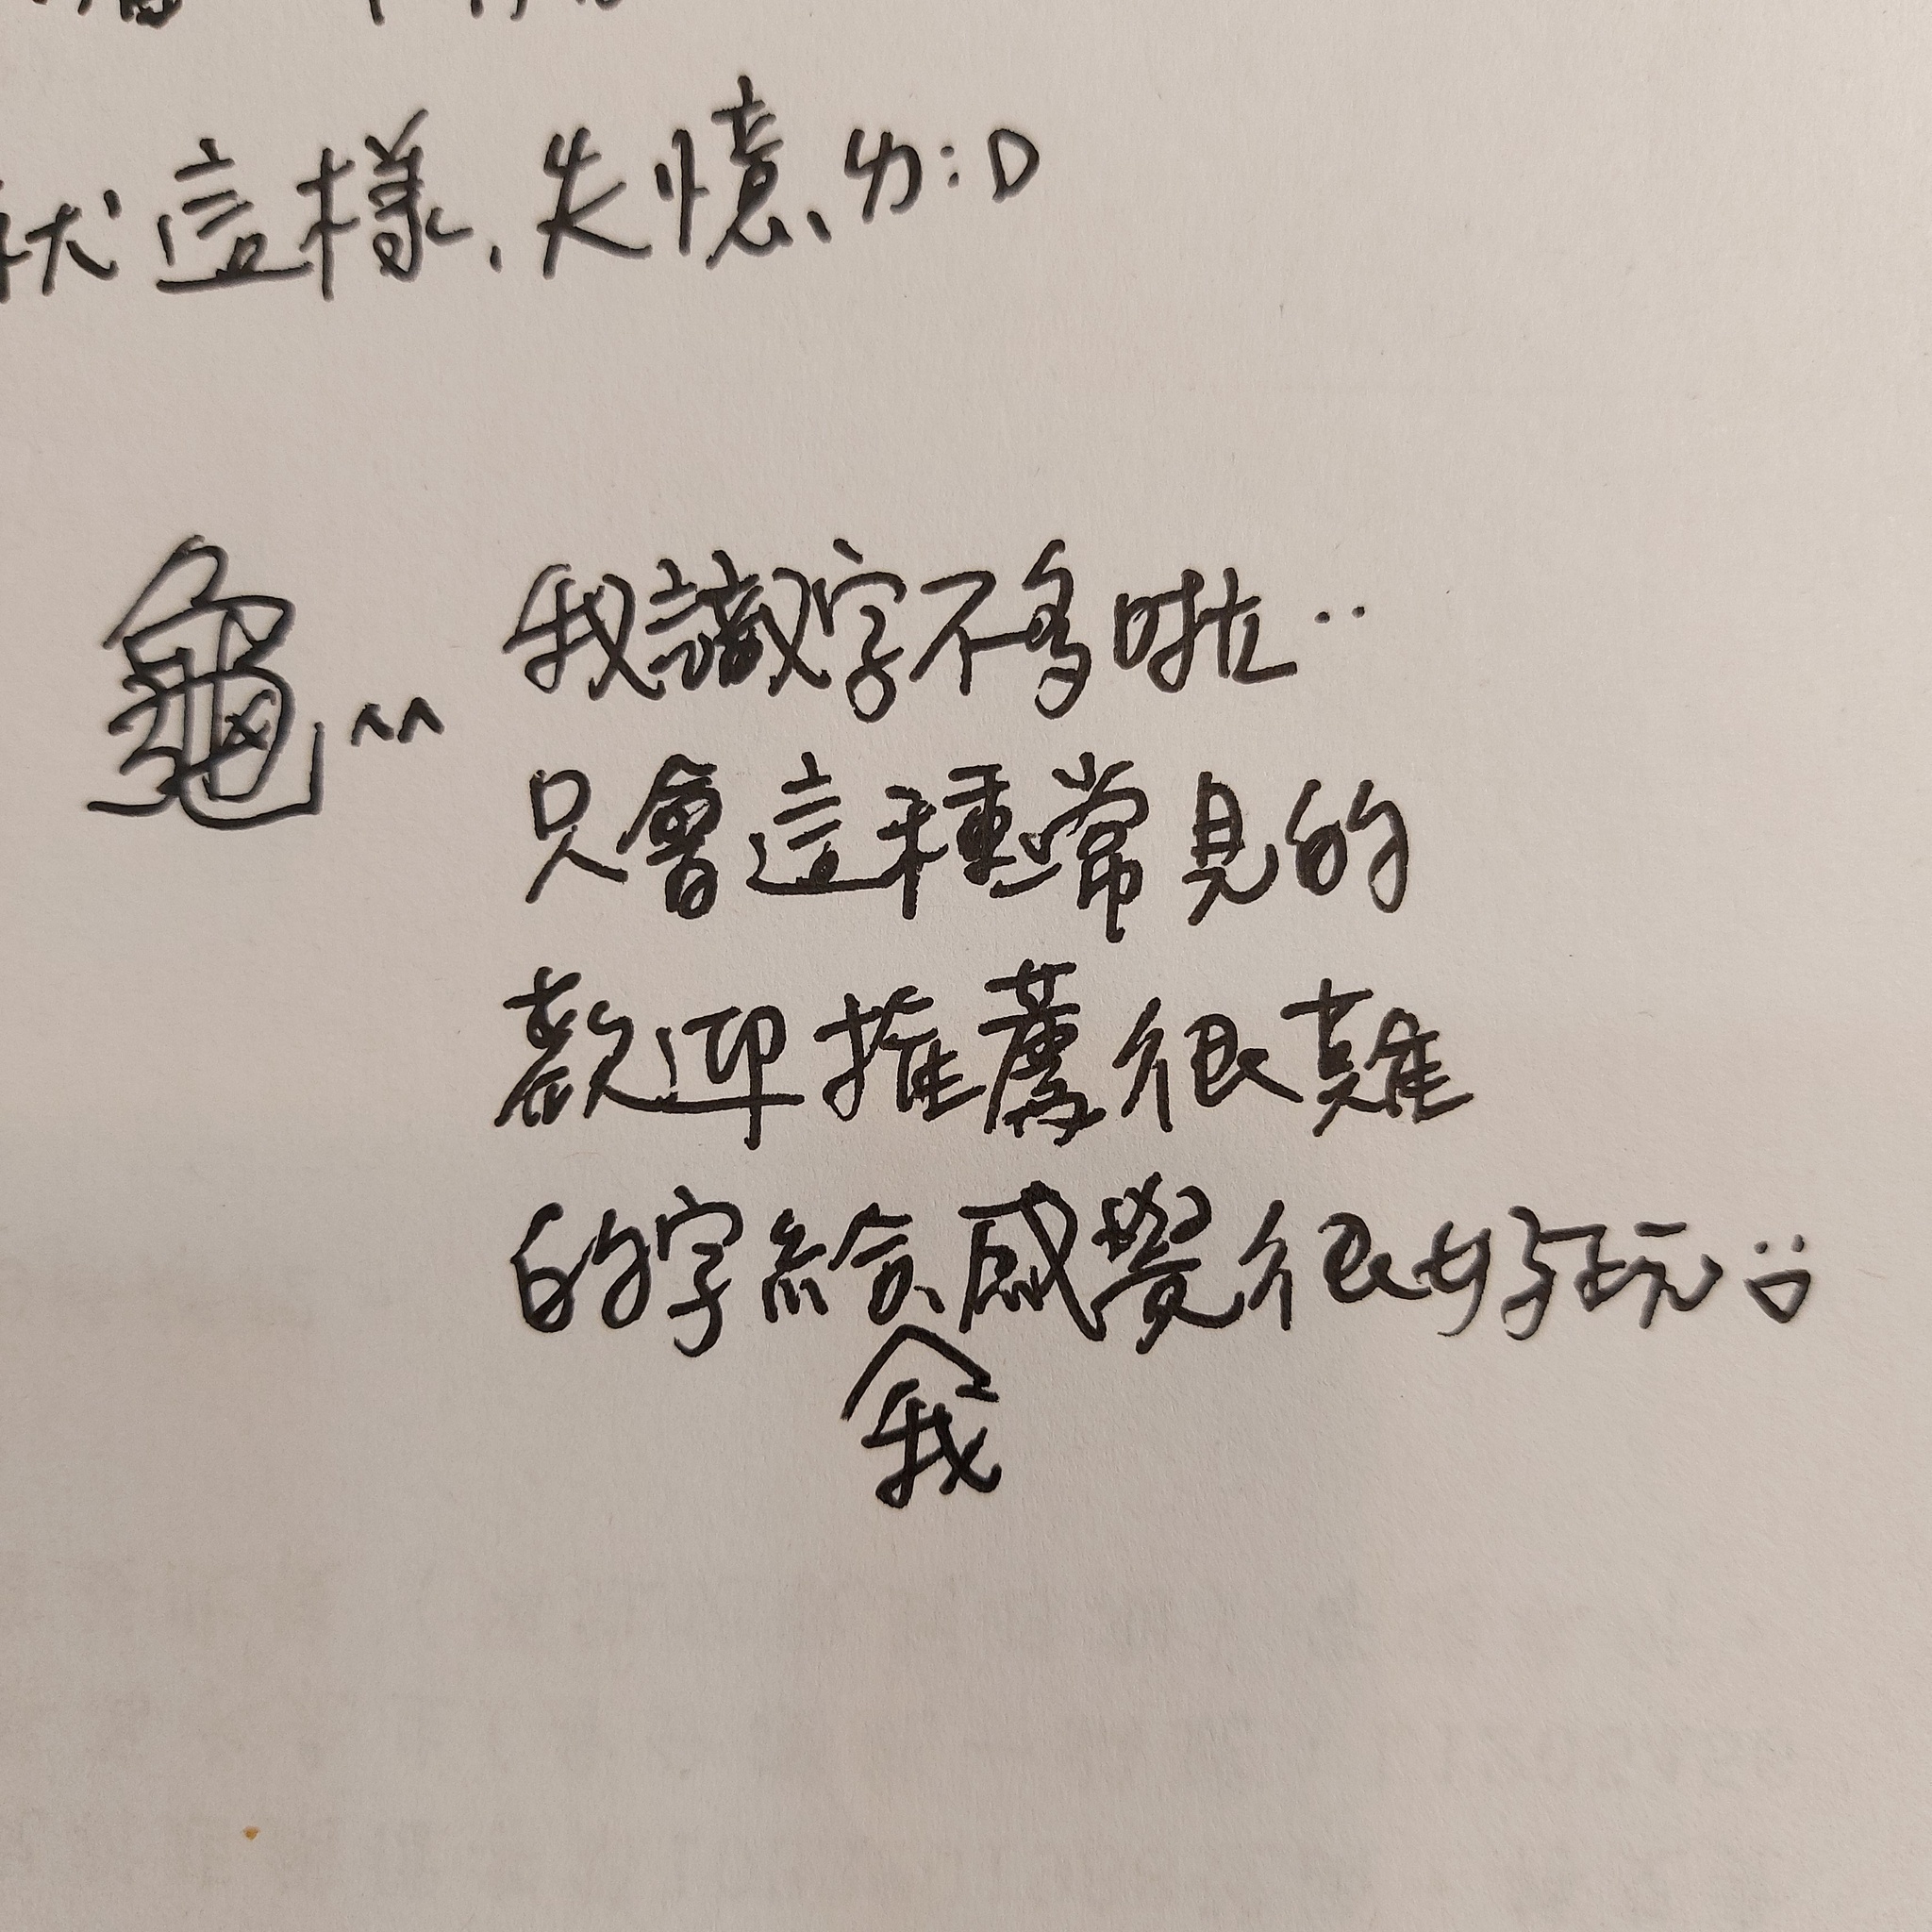 這樣、失憶、ㄌ:D
龜^^
我識字不多啦..
只會這種常見的
歡迎推薦很難
的字給我感覺很好玩